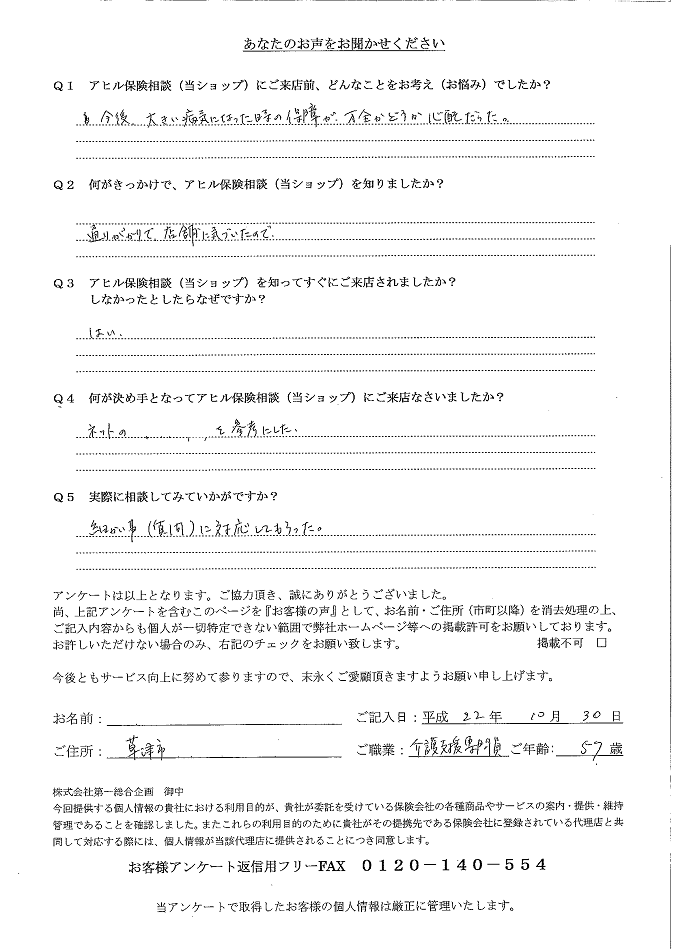 あなたのお声をお聞かせください
Q1 アヒル保険相談（当ショップ）にご来店前、どんなことをお考え（お悩み）でしたか？
今後、大きい病気になった時の保障が、万全かどうか心配だった。
Q2 何がきっかけで、アヒル保険相談（当ショップ）を知りましたか？
通りがかりで、店舗に気づいたので、
Q3 アヒル保険相談（当ショップ）を知ってすぐにご来店されましたか？
しなかったとしたらなぜですか？
はい、
Q4 何が決め手となってアヒル保険相談（当ショップ）にご来店なさいましたか？
ネットの を参考にした、
Q5 実際に相談してみていかがですか？
細かい事（質問）に対応してもらった。
アンケートは以上となります。ご協力頂き、誠にありがとうございました。
尚、上記アンケートを含むこのページを『お客様の声』として、お名前・ご住所（市町以降）を消去処理の上、
ご記入内容からも個人が一切特定できない範囲で弊社ホームページ等への掲載許可をお願いしております。
お許しいただけない場合のみ、右記のチェックをお願い致します。 掲載不可 □
今後ともサービス向上に努めて参りますので、末永くご愛顧頂きますようお願い申し上げます。
お名前： ご記入日：平成 22年 10月 30日
ご住所： 草津市 ご職業：介護支援専門員 ご年齢： 57歳
株式会社第一総合企画 御中
今回提供する個人情報の貴社における利用目的が、貴社が委託を受けている保険会社の各種商品やサービスの案内・提供・維持
管理であることを確認しました。またこれらの利用目的のために貴社がその提携先である保険会社に登録されている代理店と共
同して対応する際には、個人情報が当該代理店に提供されることにつき同意します。
お客様アンケート返信用フリーFAX 0120－140－554
当アンケートで取得したお客様の個人情報は厳正に管理いたします。